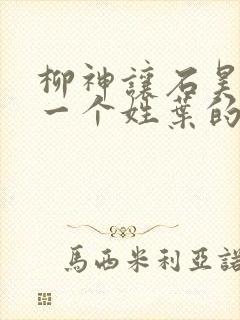 柳神讓石昊
一个姓葉的
馬西米利亞諾